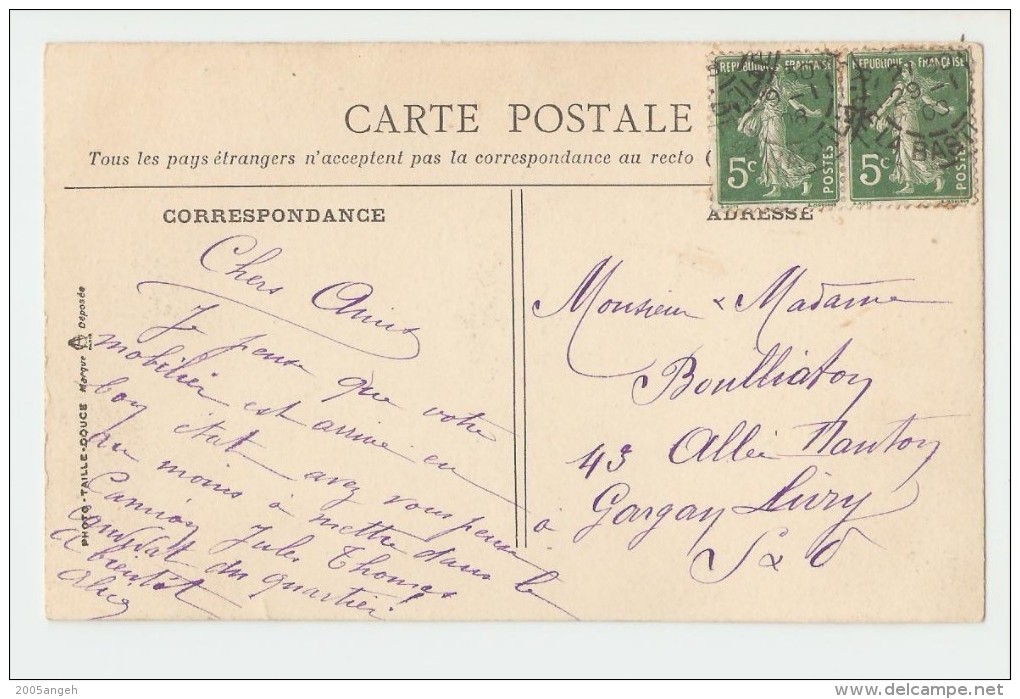 CARTE POSTALE
Tous les pays étrangers n'acceptent pas la correspondance au recto (
REPUBLIQUE FRANÇAISE
5c
POSTES
REPUBLIQUE FRANÇAISE
5c
POSTES
29
LA BAST
CORRESPONDANCE
Chers Amis
Je pense que votre
mobilier est arrivé en
bon état avez vous pensé
au moins à mettre dans le
Camion Jules Thomas
du quartier!
A bientôt
PHOTO-TAILLE-DOUCE Marque Déposée
ADRESSE
Monsieur & Madame
Boulliaton
43 Allée Nanton
à Gargan Livry
S & O
2005angeh
delcampe.net